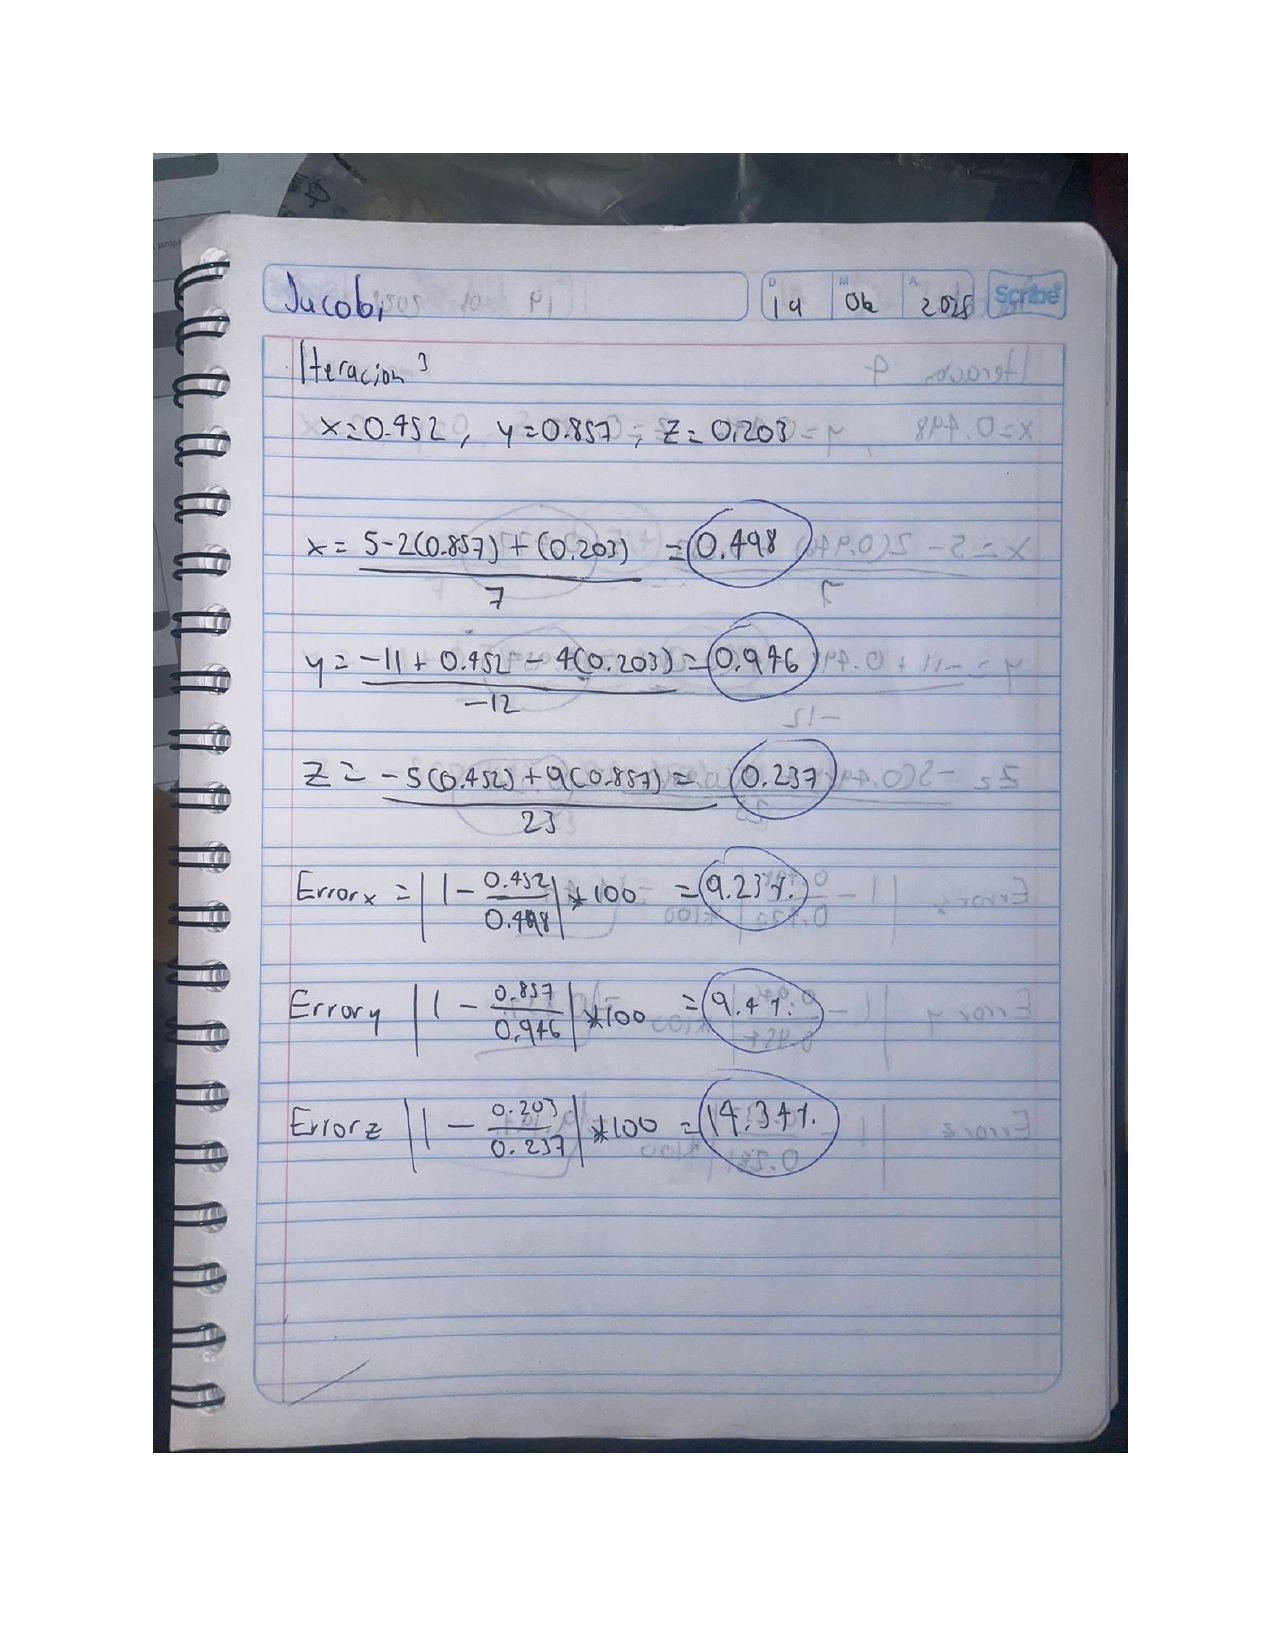 Jacobi D 19 M 06 A 2025 Scribe
Iteracion 3
x=0.452, y=0.857, z=0.203
x = 5-2(0.857)+(0.203) = 0.498
7
y = -11 + 0.452 - 4(0.203) = 0.946
-12
z = -5(0.452)+9(0.857) = 0.237
23
Error x = |1 - 0.452/0.498| *100 = 9.23%
Error y |1 - 0.857/0.946| *100 = 9.4%
Error z |1 - 0.203/0.237| *100 = 14.34%